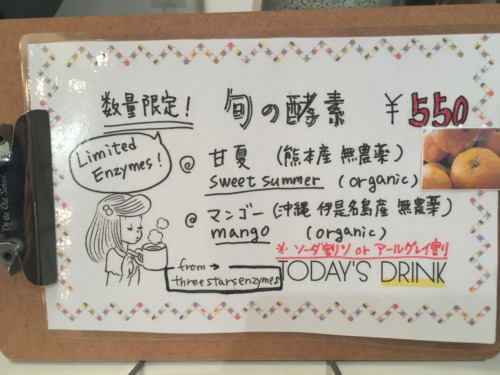 数量限定! 旬の酵素 ¥550
Limited
Enzymes!
@ 甘夏 (熊本産 無農薬)
sweet summer (organic)
@ マンゴー (沖縄 伊是名島産 無農薬)
mango (organic)
※ ソーダ割り or アールグレイ割
from →
threestarsenzymes
TODAY'S DRINK